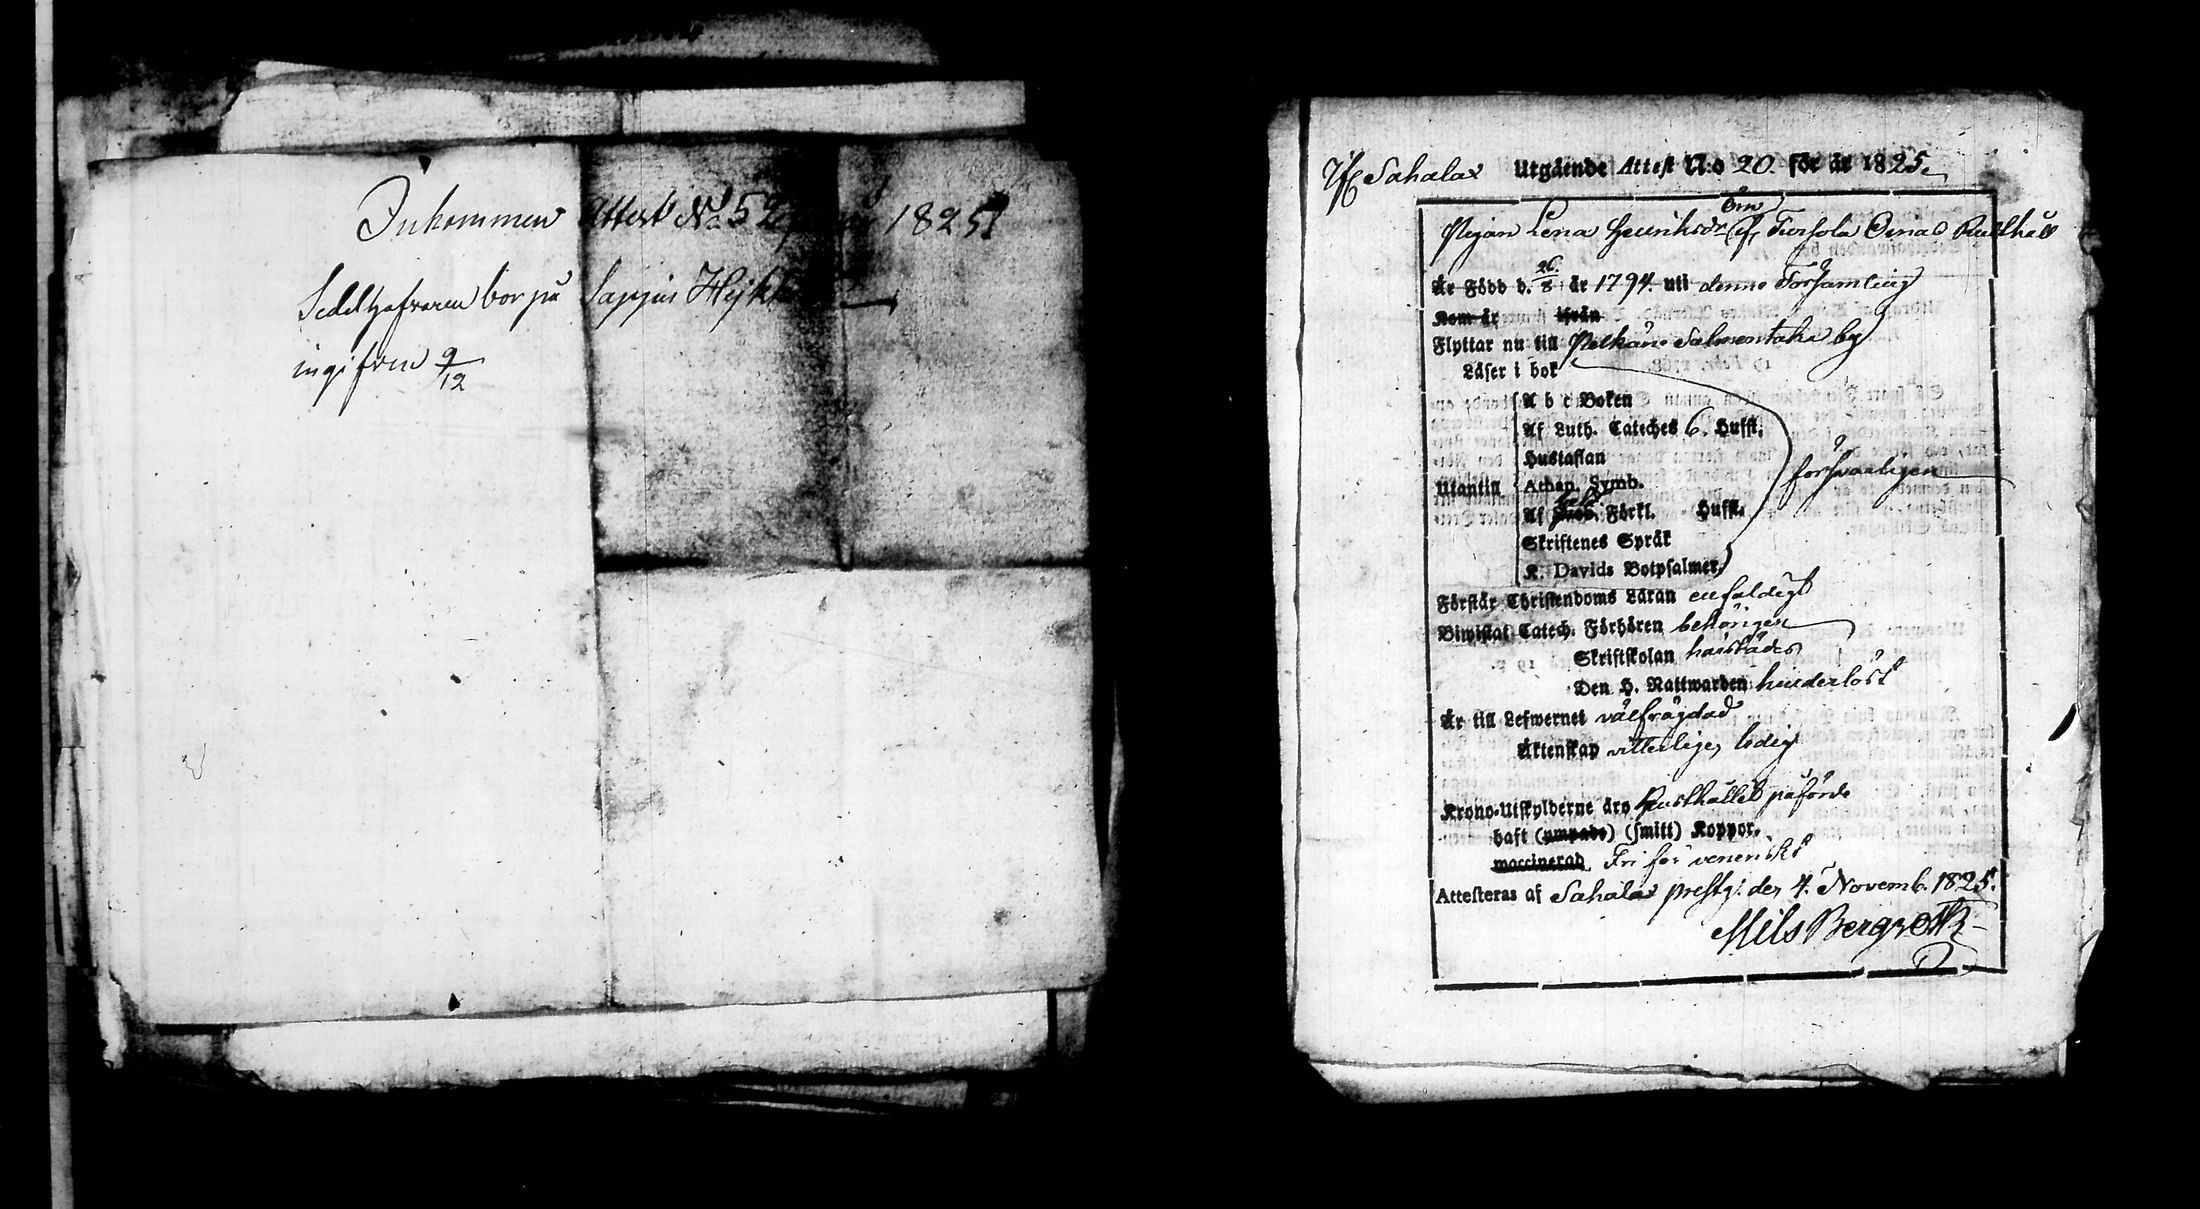 Inkommen Attest No 52 1825
Sedelhafvaren bor på Sappi Heikk
ingifven 9/12
Sahalax Utgående Attest N:o 20. för år 1825.
Pigan Lena Henriksdr Turkola Rusthåll
Är Född d. 26/8 år 1794. uti denne Församling
Kom år ifrån
Flyttar nu till Pelkäne Salmentaka by
Läser i bok
A b c Boken
Af Luth. Cateches 6. Hufst.
Hustaflan
Utantill Athan. Symb. försvarligen
Af Förkl. Hufst.
Skriftenes Språk
K. Davids Botpsalmer.
Förstår Christendoms Läran enfaldigt
Biwistat Catech. Förhören behörigen
Skriftskolan härstädes
Den H. Nattwarden hinderlöst
Är till Lefwernet välfrägdad
Äktenskap vitterligen ledig
Krono-Utskylderne äro Rusthållet påförde
haft (ympade) (smitt) Koppor.
waccinerad. Fri för veneriskt
Attesteras af Sahalax prestg. den 4. Novemb. 1825.
Nils Bergroth